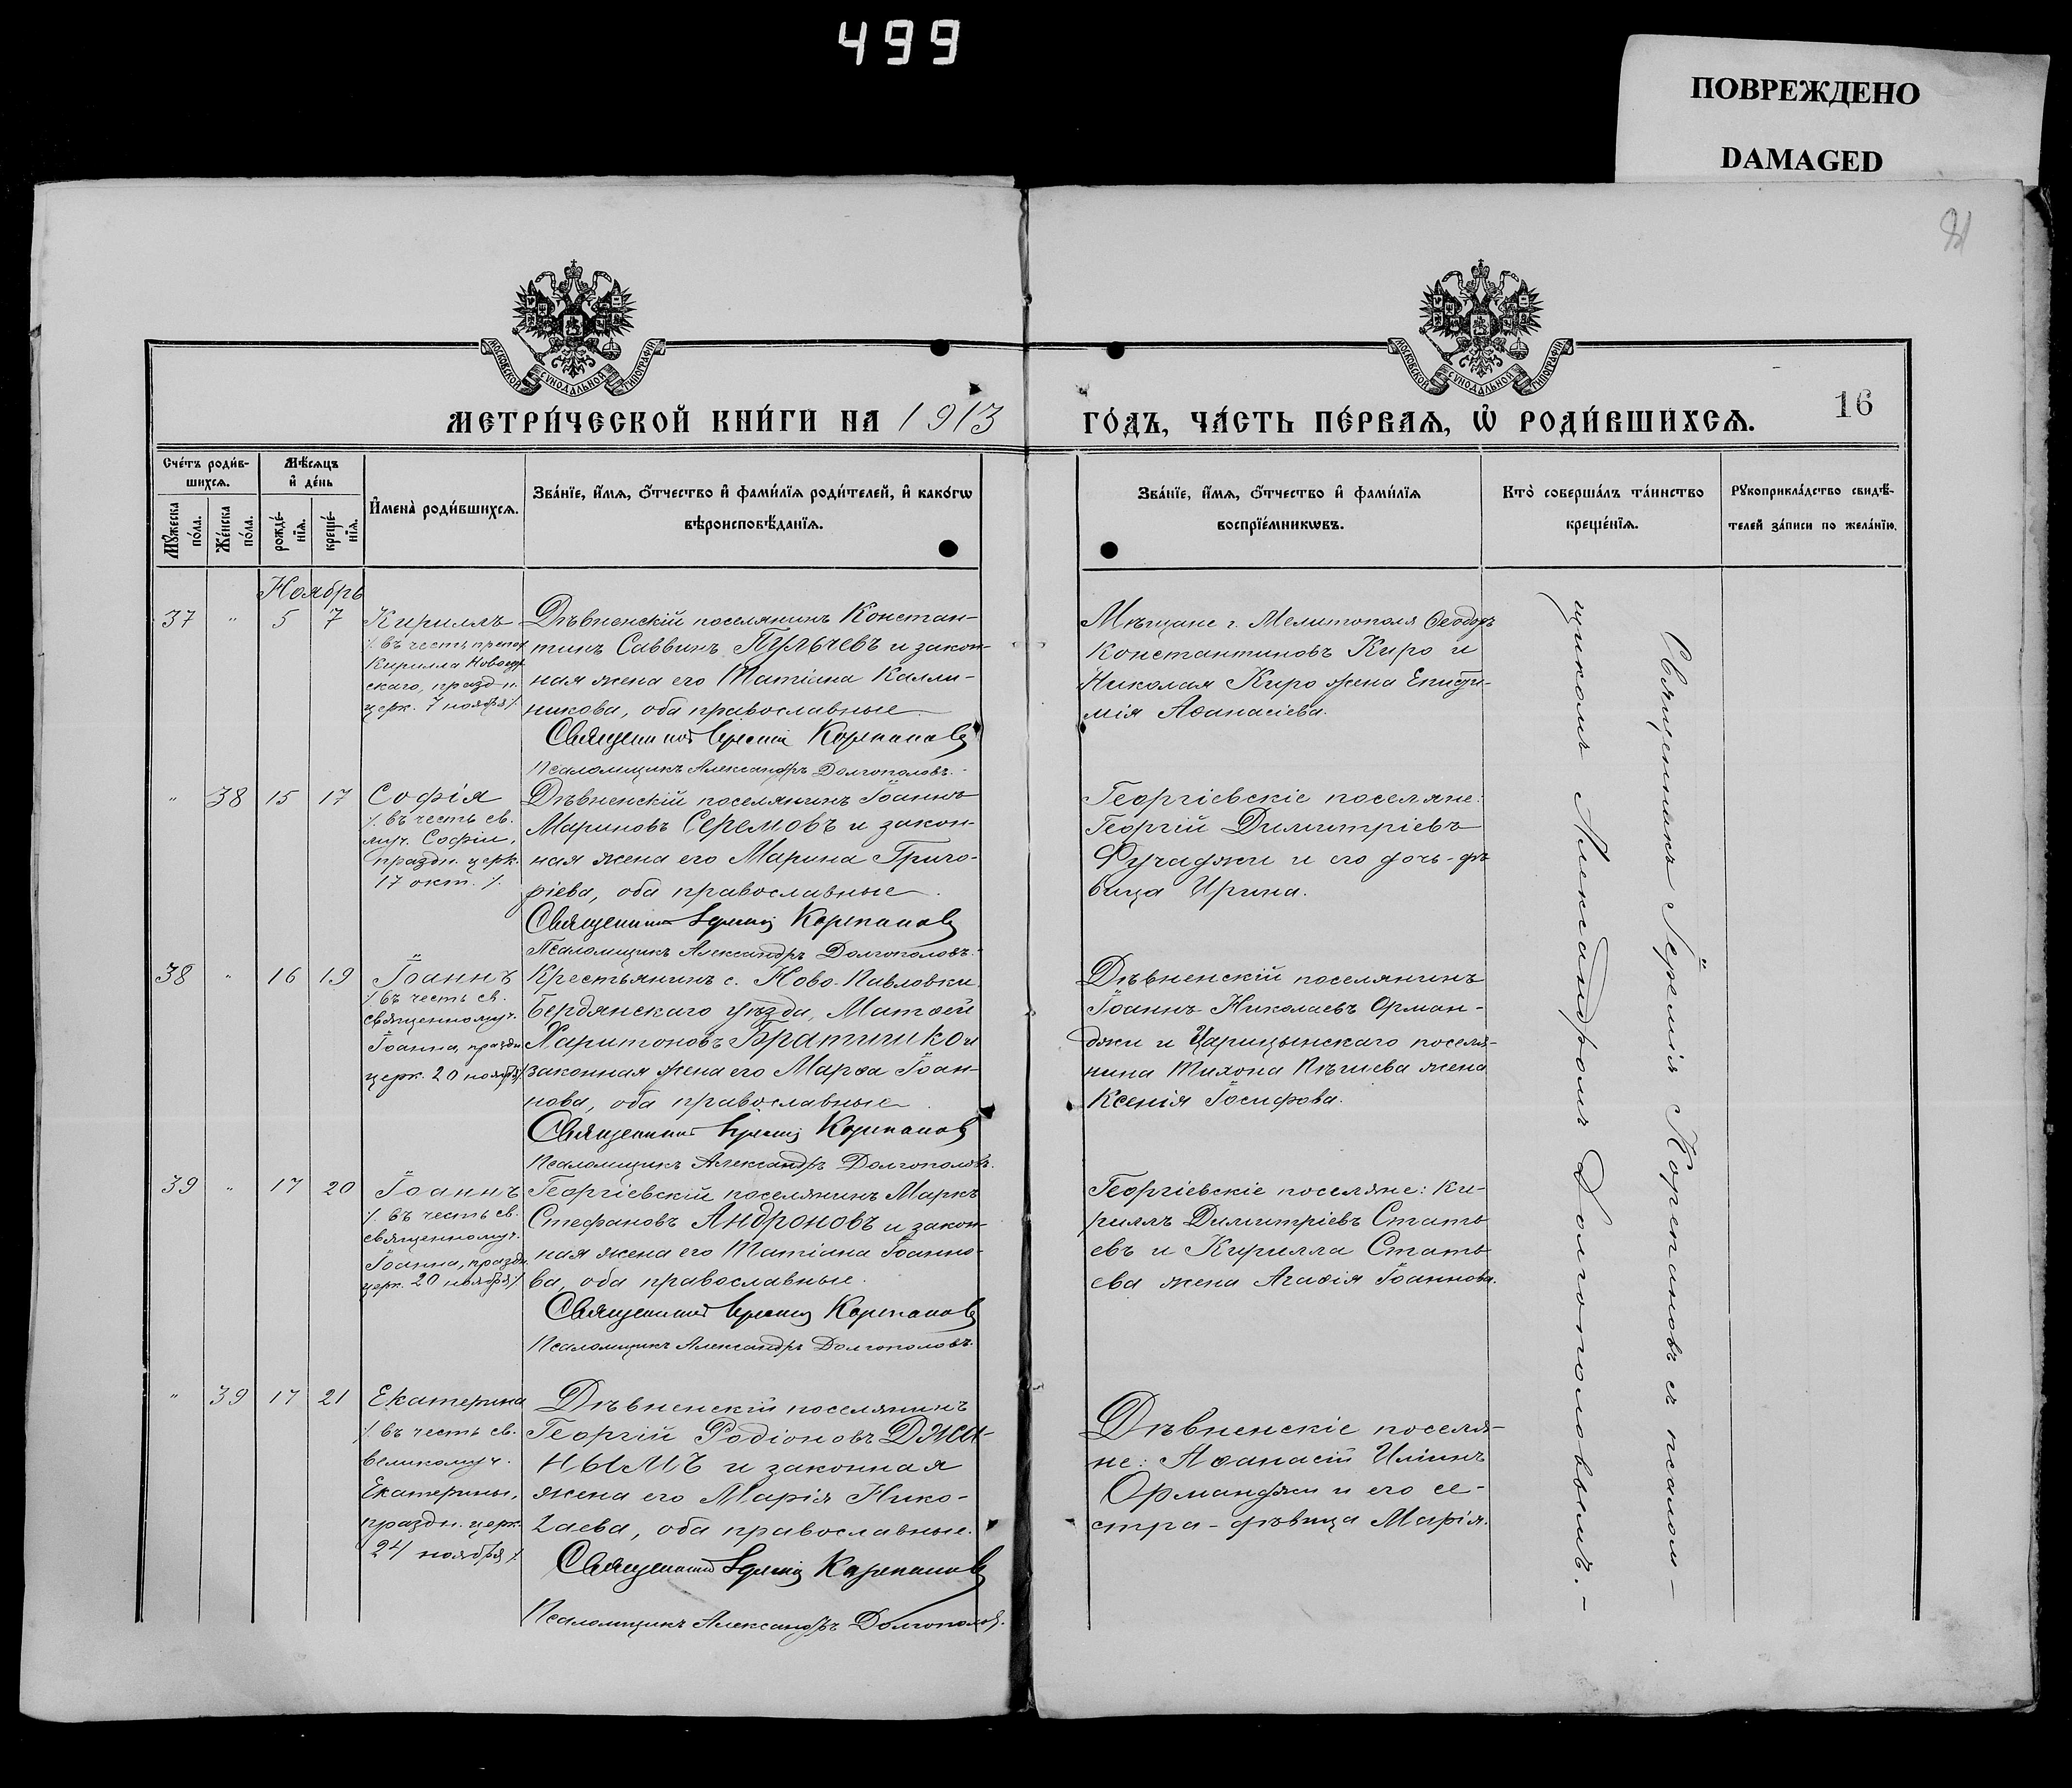 499
ПОВРЕЖДЕНО
DAMAGED
16
МОСКОВСКОЙ СѴНОДАЛЬНОЙ ТИПОГРАФІИ
МОСКОВСКОЙ СѴНОДАЛЬНОЙ ТИПОГРАФІИ
МЕТРИ́ЧЕСКОЙ КНИ́ГИ НА 1913
ГО́ДЪ, ЧА́СТЬ ПЕ́РВАѦ, Ѡ҆ РОДИ́ВШИХСѦ.
Сче́тъ роди́в-
шихсѧ.
Мꙋ́жеска по́ла.
Же́нска по́ла.
Мѣ́сѧцъ
и҆ де́нь
рожде́-
нїѧ.
креще́-
нїѧ.
И҆мена̀ роди́вшихсѧ.
Зва́нїе, и҆́мѧ, ѻ҆́тчество и҆ фами́лїѧ роди́телей, и҆ како́гѡ
вѣроисповѣ́данїѧ.
Зва́нїе, и҆́мѧ, ѻ҆́тчество и҆ фами́лїѧ
воспрїе́мникѡвъ.
Кто̀ соверша́лъ та́инство
креще́нїѧ.
Рꙋкоприкла́дство свидѣ́-
телей за́писи по жела́нїю.
Ноябрь
37 " 5 7
Кириллъ
/. въ честь препод.
Кирилла Новоезер-
скаго, праздн.
церк. 7 ноября /.
Дѣвненскій поселянинъ Констан-
тинъ Саввинъ Пулычевъ и закон-
ная жена его Татіана Калли-
никова, оба православные.
Священникъ Іеремія Корепановъ
Псаломщикъ Александръ Долгополовъ.
Мѣщане г. Мелитополя Ѳеодоръ
Константиновъ Киро и
Николая Киро жена Еписти-
мія Аѳанасіева.
" 38 15 17
Софія
/. въ честь св.
муч. Софіи,
праздн. церк.
17 окт. /.
Дѣвненскій поселянинъ Іоаннъ
Мариновъ Серемовъ и закон-
ная жена его Марина Григо-
ріева, оба православные.
Священникъ Іеремія Корепановъ
Псаломщикъ Александръ Долгополовъ.
Георгіевскіе поселяне:
Георгій Димитріевъ
Фучаджи и его дочь-дѣ-
вица Ирина.
38 " 16 19
Іоаннъ
/. въ честь св.
священномуч.
Іоанна, праздн.
церк. 20 ноября /.
Крестьянинъ с. Ново-Павловки,
Бердянскаго уѣзда, Матѳей
Харитоновъ Братишко и
законная жена его Марѳа Іоан-
нова, оба православные.
Священникъ Іеремія Корепановъ
Псаломщикъ Александръ Долгополовъ.
Дѣвненскій поселянинъ
Іоаннъ Николаевъ Орман-
джи и Царицынскаго поселя-
нина Тихона Пѣшева жена
Ксенія Іосифова.
39 " 17 20
Іоаннъ
/. въ честь св.
священномуч.
Іоанна, праздн.
церк. 20 ноября /.
Георгіевскій поселянинъ Маркъ
Стефановъ Андроновъ и закон-
ная жена его Татіана Іоанно-
ва, оба православные.
Священникъ Іеремія Корепановъ
Псаломщикъ Александръ Долгополовъ.
Георгіевскіе поселяне: Ки-
риллъ Димитріевъ Стать-
евъ и Кирилла Стать-
ева жена Агаѳія Іоаннова.
" 39 17 21
Екатерина
/. въ честь св.
великомуч.
Екатерины,
праздн. церк.
24 ноября /.
Дѣвненскій поселянинъ
Георгій Родіоновъ Джа-
нымъ и законная
жена его Марія Нико-
лаева, оба православные.
Священникъ Іеремія Корепановъ
Псаломщикъ Александръ Долгополовъ.
Дѣвненскіе поселя-
не: Аѳанасій Иліинъ
Орманджи и его се-
стра-дѣвица Марія.
Священникъ Іеремія Корепановъ съ псалом-
щикомъ Александромъ Долгополовымъ.-